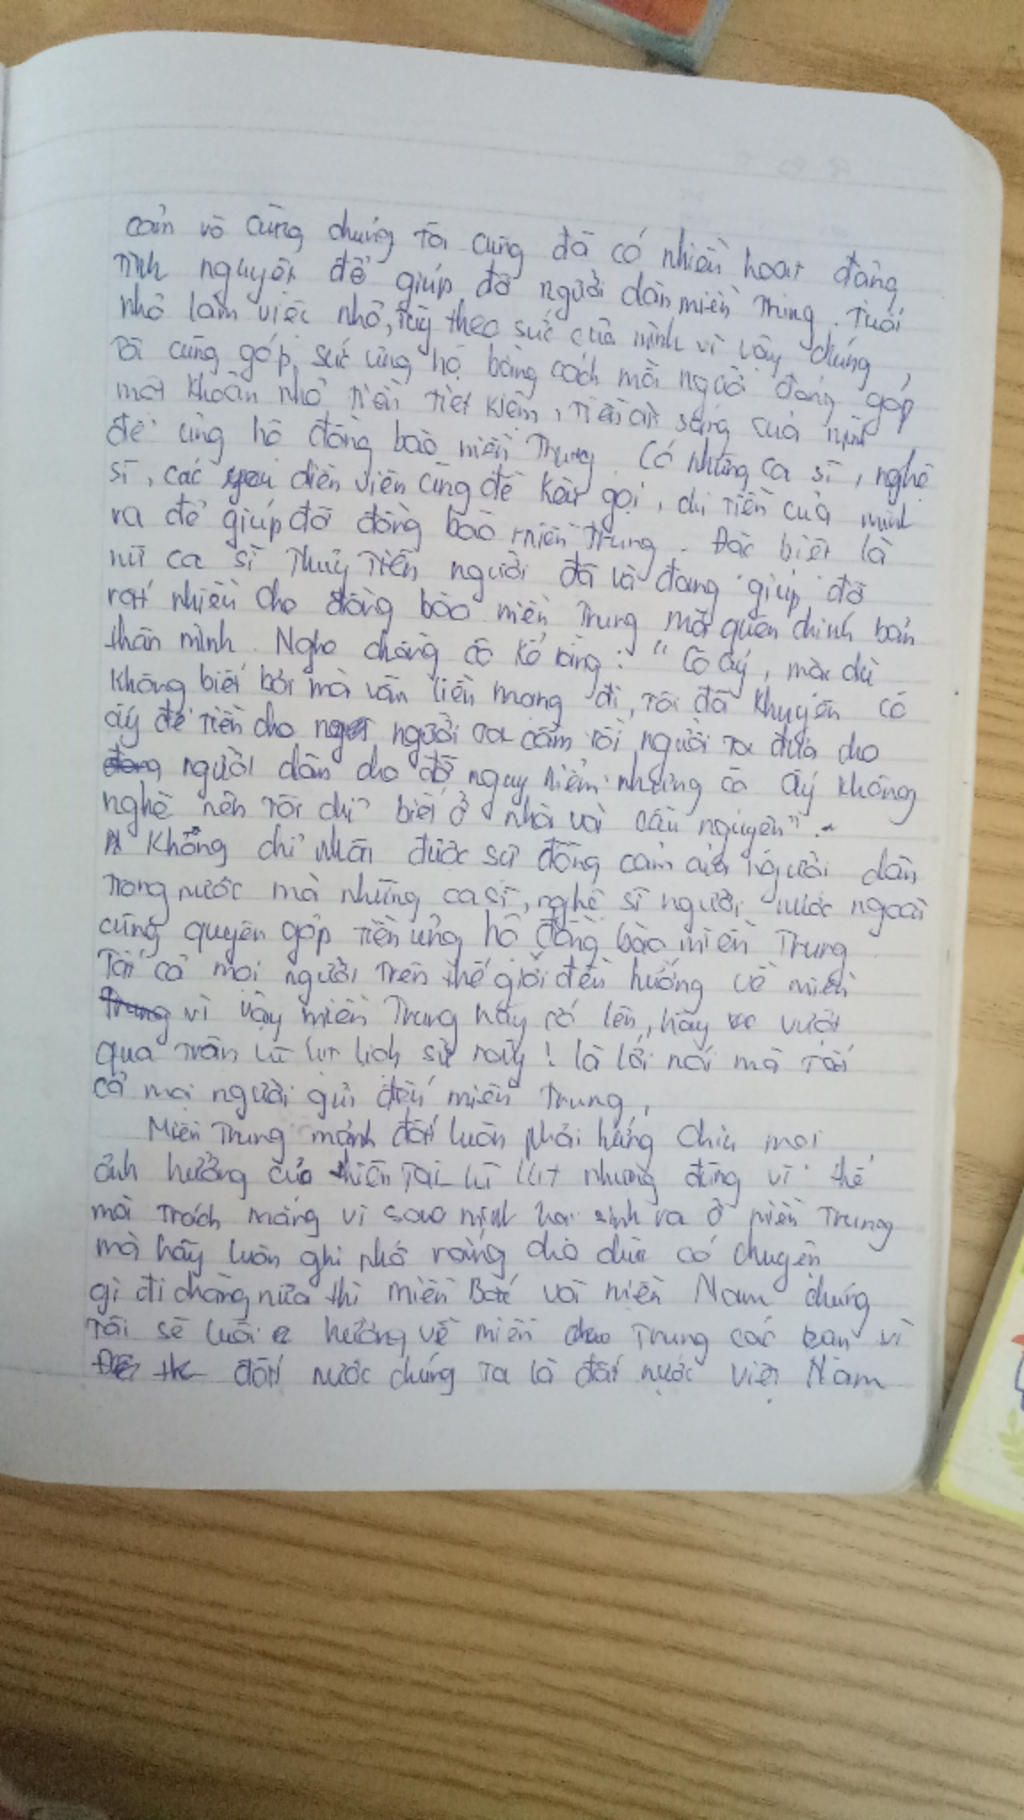 cảm vô cùng chúng tôi cũng đã có nhiều hoạt động
tình nguyện để giúp đỡ người dân miền Trung. Tuổi
nhỏ làm việc nhỏ, tùy theo sức của mình vì vậy chúng
tôi cũng góp sức ủng hộ bằng cách mỗi người đóng góp
một khoản nhỏ tiền tiết kiệm, tiền ăn sáng của mình
để ủng hộ đồng bào miền Trung. Có những ca sĩ, nghệ
sĩ, các diễn viên cũng để kêu gọi, chi tiền của mình
ra để giúp đỡ đồng bào miền Trung. Đặc biệt là
nữ ca sĩ Thủy Tiên người đã và đang giúp đỡ
rất nhiều cho đồng bào miền Trung mà quên chính bản
thân mình. Nghe chồng cô kể rằng: "Cô ấy, mặc dù
không biết bơi mà vẫn liều mạng đi, tôi đã khuyên cô
ấy để tiền cho người ta cầm rồi người ta đưa cho
người dân cho đỡ nguy hiểm nhưng cô ấy không
nghe nên tôi chỉ biết ở nhà và cầu nguyện".
Không chỉ nhận được sự đồng cảm của người dân
trong nước mà những ca sĩ, nghệ sĩ người nước ngoài
cũng quyên góp tiền ủng hộ đồng bào miền Trung
Tất cả mọi người trên thế giới đều hướng về miền
Trung vì vậy miền Trung hãy cố lên, hãy vượt
qua trận lũ lụt lịch sử này! là lời nói mà tất
cả mọi người gửi đến miền Trung,
Miền Trung mảnh đất luôn phải hứng chịu mọi
ảnh hưởng của thiên tai lũ lụt nhưng đừng vì thế
mà trách mắng vì sao mình lại sinh ra ở miền Trung
mà hãy luôn ghi nhớ rằng cho dù có chuyện
gì đi chăng nữa thì miền Bắc và miền Nam chúng
tôi sẽ luôn hướng về miền Trung các bạn vì
đất nước chúng ta là đất nước Việt Nam